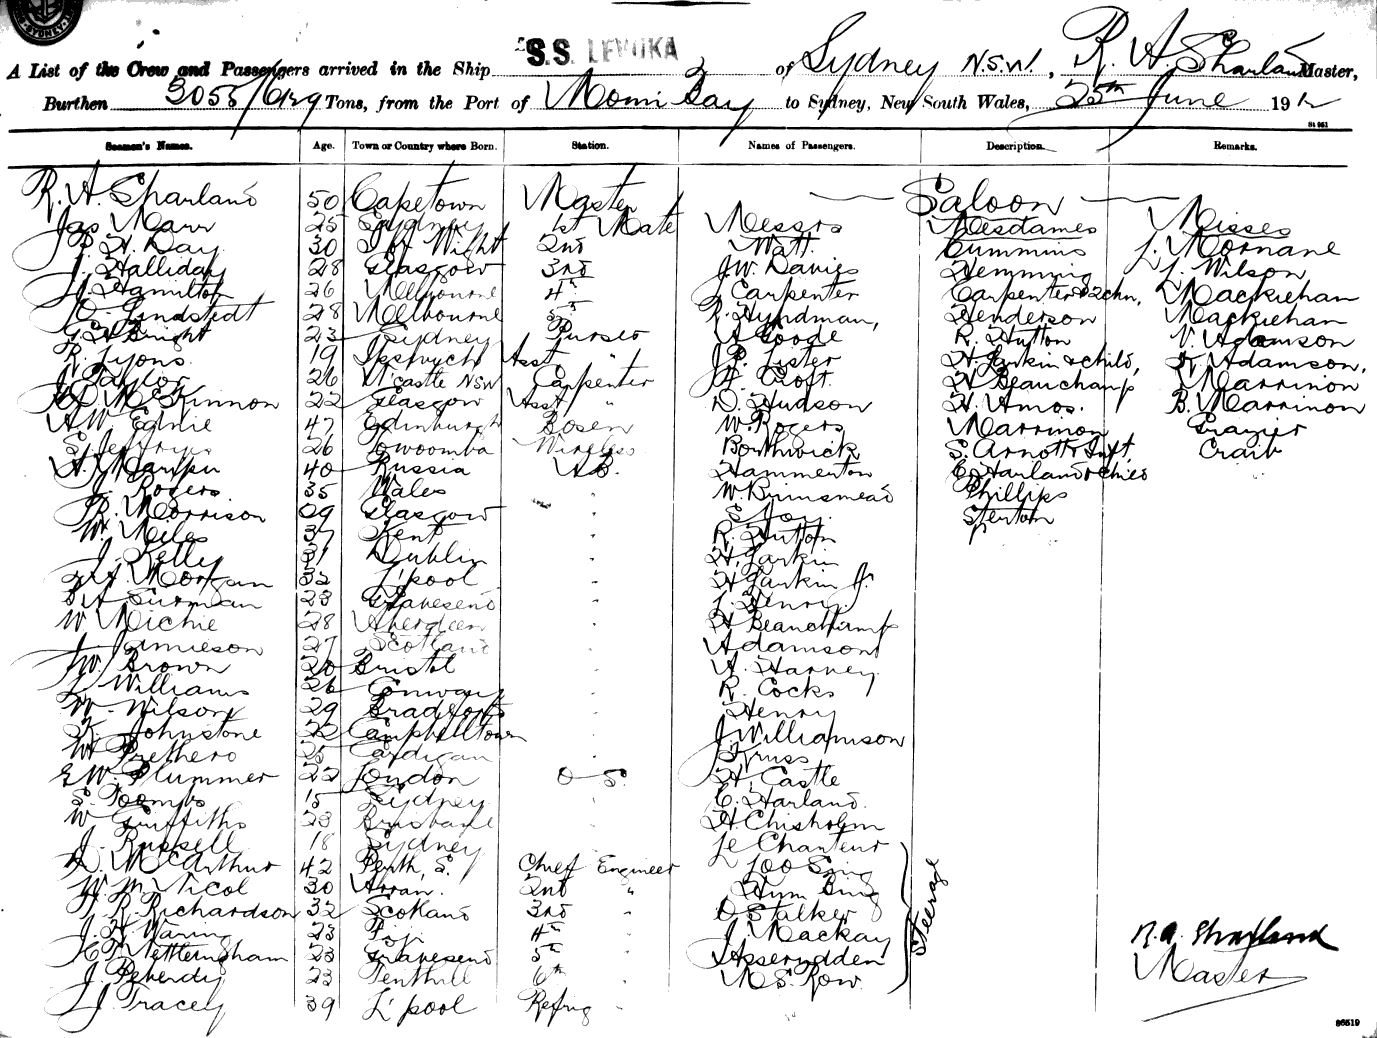 SYDNEY
A List of the Crew and Passengers arrived in the Ship S.S. LEVUKA of Sydney N.S.W., R. A. Sharland Master,
Burthen 3055/ Tons, from the Port of Momi Bay to Sydney, New South Wales, 25th June 191
St 951
Seamen's Names. Age. Town or Country where Born. Station. Names of Passengers. Description. Remarks.
Saloon
R. A. Sharland 50 Capetown Master
Jas Marr 25 Sydney 1st Mate Messrs Mesdames Misses
H. Day 30 I of Wight 2nd Watt Cummins J. Mornane
J. Halliday 28 Glasgow 3rd J.W. Davies Hemming L. Wilson
Hamilton 26 Melbourne 4th J Carpenter Carpenter & 2 chn, Mackiehan
Lindstedt 28 Melbourne 5th R. Hyndman, Henderson Mackiehan
Bright 23 Sydney Purser Goode R. Hutton V. Adamson
R. Lyons 19 Ipswich Asst " J. P. Lister H. Larkin & child, Adamson,
J Taylor 26 N'castle NSW Carpenter Croft. H Beauchamp Marrinon
McKinnon 22 Glasgow Asst " D. Hudson H. Amos. B. Marrinon
A W. Ednie 47 Edinburgh Bosen W Rogers Marrinon Grazier
S. Jeffrys 26 Towoomba Wireless Borthwick S. Arnott & Inft, Craib
40 Russia A.B. Hammerton E. Harland & child
J. Rogers. 35 Wales " W. Brinsmead Phillips
R. Morrison Glasgow " S Joy Stenton
W. Miles 37 Kent " R. Hutton
J. Kelly 31 Dublin " H. Larkin
Morgan 32 L'pool " H Larkin Jr
Surman 23 Gravesend " J. Henry
W Michie 28 Aberdeen " H Beauchamp
J Jamieson 27 Scotland " Adamson
W. Brown 20 Bristol " A. Harvey
L Williams 26 Conway " R. Cocks
W. Wilson 29 Bradford " Henry
Johnstone 22 Campbelltown " J. Williamson
W Prethero 25 Cardigan " J Truss
E W. Plummer 22 London O S. H. Castle
S. Toombs 15 Sydney " E. Harland.
W Griffiths 23 Brisbane " H Chisholm
J. Russell 18 Sydney " Le Chanteur
D. McArthur 42 Perth, S. Chief Engineer Loo Sing
W. McNicol 30 Arran. 2nd " Hum Bing
R. Richardson 32 Scotland 3rd " D Stalker
J. H Waring 23 Fiji 4th " J Mackay
Nettleingham 23 Gravesend 5th "
J. Peberdy 23 Tenthill 6th " M S. Row.
J. Tracey 39 L'pool Refrig "
Steerage
R. A. Sharland
Master
86519